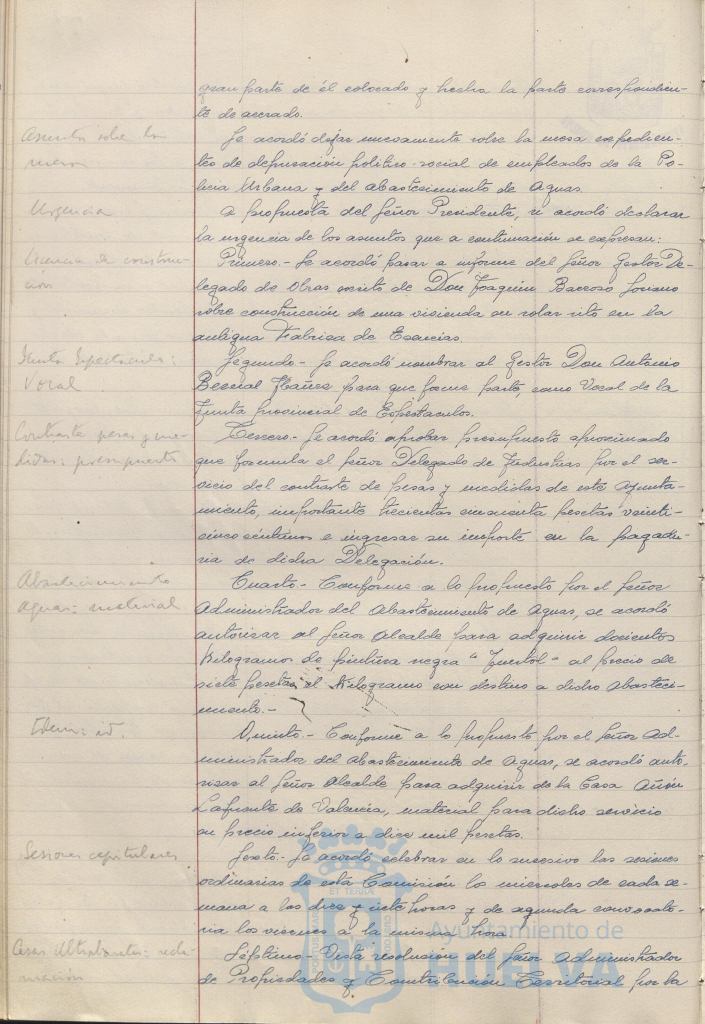 gran parte de él colocado y hecha la parte correspondien-
te de acerado.
Asuntos sobre la
mesa
Se acordó dejar nuevamente sobre la mesa expedien-
tes de depuración politico-social de empleados de la Po-
licia Urbana y del Abastecimiento de Aguas.
Urgencia
A propuesta del Señor Presidente, se acordó declarar
la urgencia de los asuntos que a continuación se expresan:
Licencia de construc-
cion
Primero.- Se acordó pasar a informe del Señor Gestor De-
legado de Obras escrito de Don Joaquin Barroso Soriano
sobre construcción de una vivienda en solar sito en la
antigua Fabrica de Esencias.
Junta Espectaculos:
Vocal
Segundo.- Se acordó nombrar al Gestor Don Antonio
Bernal Ibañez para que forme parte, como Vocal de la
Junta Provincial de Espectaculos.
Contraste pesas y me-
didas: presupuesto
Tercero.- Se acordó aprobar presupuesto aproximado
que formula el Señor Delegado de Industrias por el ser-
vicio del contraste de pesas y medidas de este Ayunta-
miento, importante trecientas cincuenta pesetas veinti-
cinco céntimos e ingresar su importe en la pagadu-
ria de dicha Delegación.
Abastecimiento
Aguas: material
Cuarto.- Conforme a lo propuesto por el Señor
Administrador del Abastecimiento de Aguas, se acordó
autorizar al Señor Alcalde para adquirir doscientos
Kilogramos de pintura negra al precio de
siete pesetas el Kilogramo con destino a dicho Abasteci-
miento.-
Idem: id.
Quinto.- Conforme a lo propuesto por el Señor Ad-
ministrador del Abastecimiento de Aguas, se acordó auto-
rizar al Señor Alcalde para adquirir de la Casa
Lafuente de Valencia, material para dicho servicio
en precio inferior a dice mil pesetas.
Sesiones capitulares
Sexto.- Se acordó celebrar en lo sucesivo las sesiones
ordinarias de esta Comisión los miercoles de cada se-
mana a las diez y siete horas y de segunda convocato-
ria los viernes a la misma hora.
Casas Ultrabaratas: recla-
mación
Séptimo.- Vista resolución del Señor Administrador
de Propiedades y Contribución Territorial por la
Ayuntamiento de
HUELVA